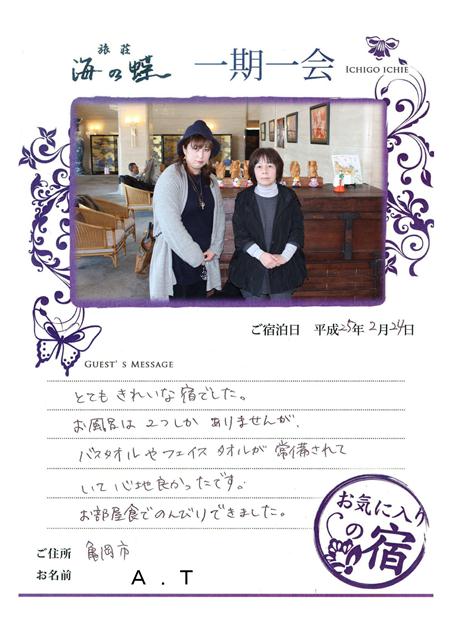 旅荘
海の蝶
一期一会
ICHIGO ICHIE
ご宿泊日 平成25年2月24日
GUEST'S MESSAGE
とても きれいな 宿でした。
お風呂は 2つしか ありませんが、
バスタオルや フェイス タオルが 常備されて
いて 心地良かったです。
お部屋食で のんびりできました。
お気に入り
の宿
ご住所 亀岡市
お名前 A.T